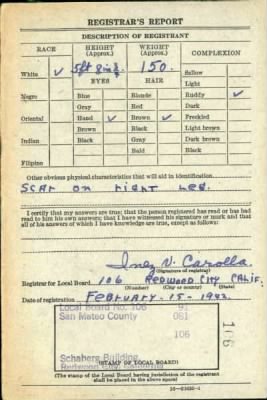 REGISTRAR'S REPORT
DESCRIPTION OF REGISTRANT
RACE HEIGHT (Approx.) WEIGHT (Approx.) COMPLEXION
White ✓ 5ft 8in. 150. Sallow
EYES HAIR Light
Negro Blue Blonde Ruddy ✓
Gray Red Dark
Oriental Hazel ✓ Brown ✓ Freckled
Brown Black Light brown
Indian Black Gray Dark brown
Bald Black
Filipino
Other obvious physical characteristics that will aid in identification
Scar on right leg.
I certify that my answers are true; that the person registered has read or has had
read to him his own answers; that I have witnessed his signature or mark and that
all of his answers of which I have knowledge are true, except as follows:
Inez V. Carolla
(Signature of registrar)
Registrar for Local Board 106 Redwood City Calif.
(Number) (City or county) (State)
Date of registration February-15-1942
Local Board No. 106 91
San Mateo County 081
106
106
Schaberg Building
Redwood City, California
(STAMP OF LOCAL BOARD)
(The stamp of the Local Board having jurisdiction of the registrant
shall be placed in the above space)